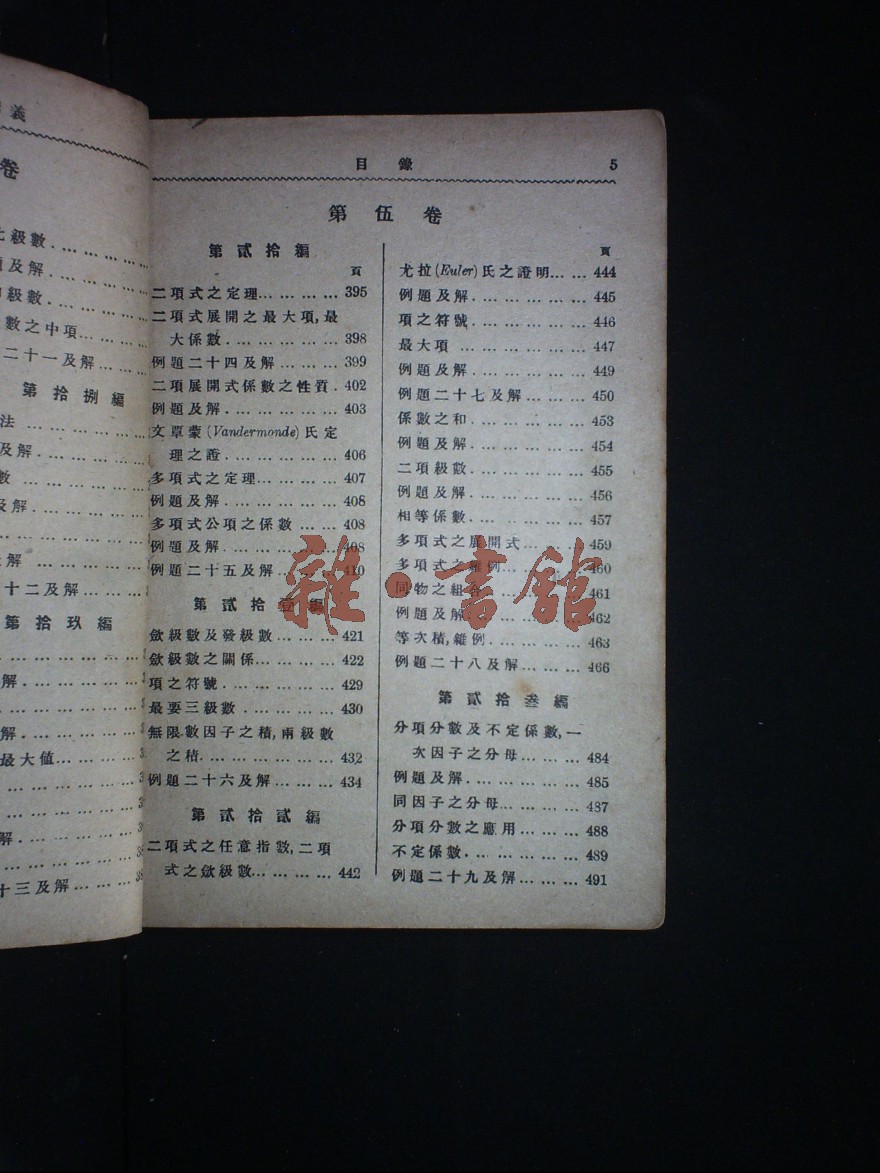 義
卷
級數. … … … …
及解. … … … …
級數. … … … …
數之中項… … …
二十一及解… …
第拾捌編
法 … … … … …
及解. … … … …
數 … … … … …
及解. … … … …
解 … … … …
十二及解… … …
第拾玖編
解. … … … …
解. … … … …
最大値… … …
解. … … … …
十三及解… … …
目錄 5
第伍卷
第貳拾編
頁
二項式之定理… … … … 395
二項式展開之最大項,最
大係數. … … … … 398
例題二十四及解… … … 399
二項展開式係數之性質. 402
例題及解. … … … … 403
文覃蒙(Vandermonde)氏定
理之證. … … … … 406
多項式之定理… … … … 407
例題及解. … … … … 408
多項式公項之係數 … … 408
例題及解. … … … … 408
例題二十五及解… … … 410
第貳拾壹編
斂級數及發級數… … … 421
斂級數之關係… … … … 422
項之符號. … … … … 429
最要三級數. … … … … 430
無限數因子之積,兩級數
之積. … … … … … 432
例題二十六及解… … … 434
第貳拾貳編
二項式之任意指數,二項
式之斂級數… … … … 442
頁
尤拉(Euler)氏之證明… … 444
例題及解. … … … … 445
項之符號. … … … … 446
最大項 … … … … … 447
例題及解. … … … … 449
例題二十七及解… … … 450
係數之和. … … … … 453
例題及解. … … … … 454
二項級數. … … … … 455
例題及解. … … … … 456
相等係數. … … … … 457
多項式之展開式… … … 459
多項式之雜例. … … … 460
同物之組合. … … … 461
例題及解. … … … … 462
等次積,雜例. … … … 463
例題二十八及解… … … 466
第貳拾叁編
分項分數及不定係數,一
次因子之分母… … … 484
例題及解. … … … … 485
同因子之分母… … … … 487
分項分數之應用… … … 488
不定係數. … … … … 489
例題二十九及解… … … 491
雜·書館